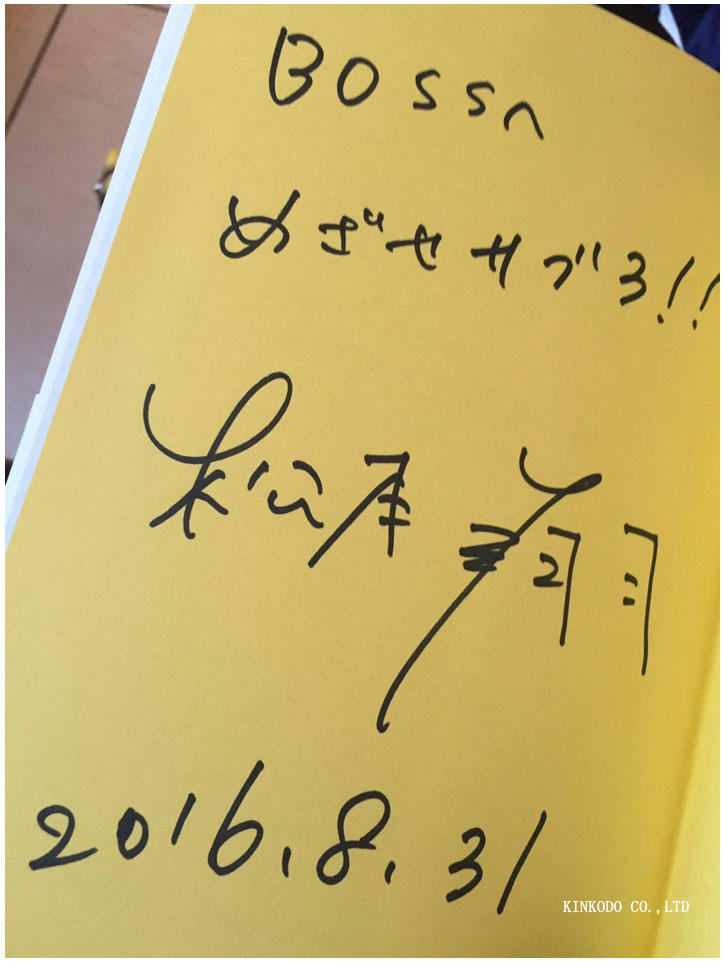 BOSSへ
めざせサブ3!!
松本翔
2016.8.31
KINKODO CO.,LTD